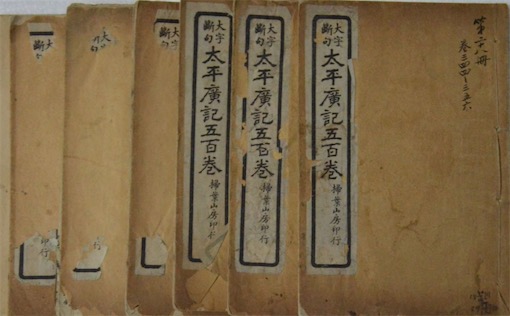 第二八册
卷三四四～三五六
大字
斷句
太平廣記五百卷
掃葉山房印行
大字
斷句
太平廣記五百卷
掃葉山房印行
大字
斷句
太平廣記五百卷
掃葉山房印
大字
斷句
印行
大
句
大
斷句
印行